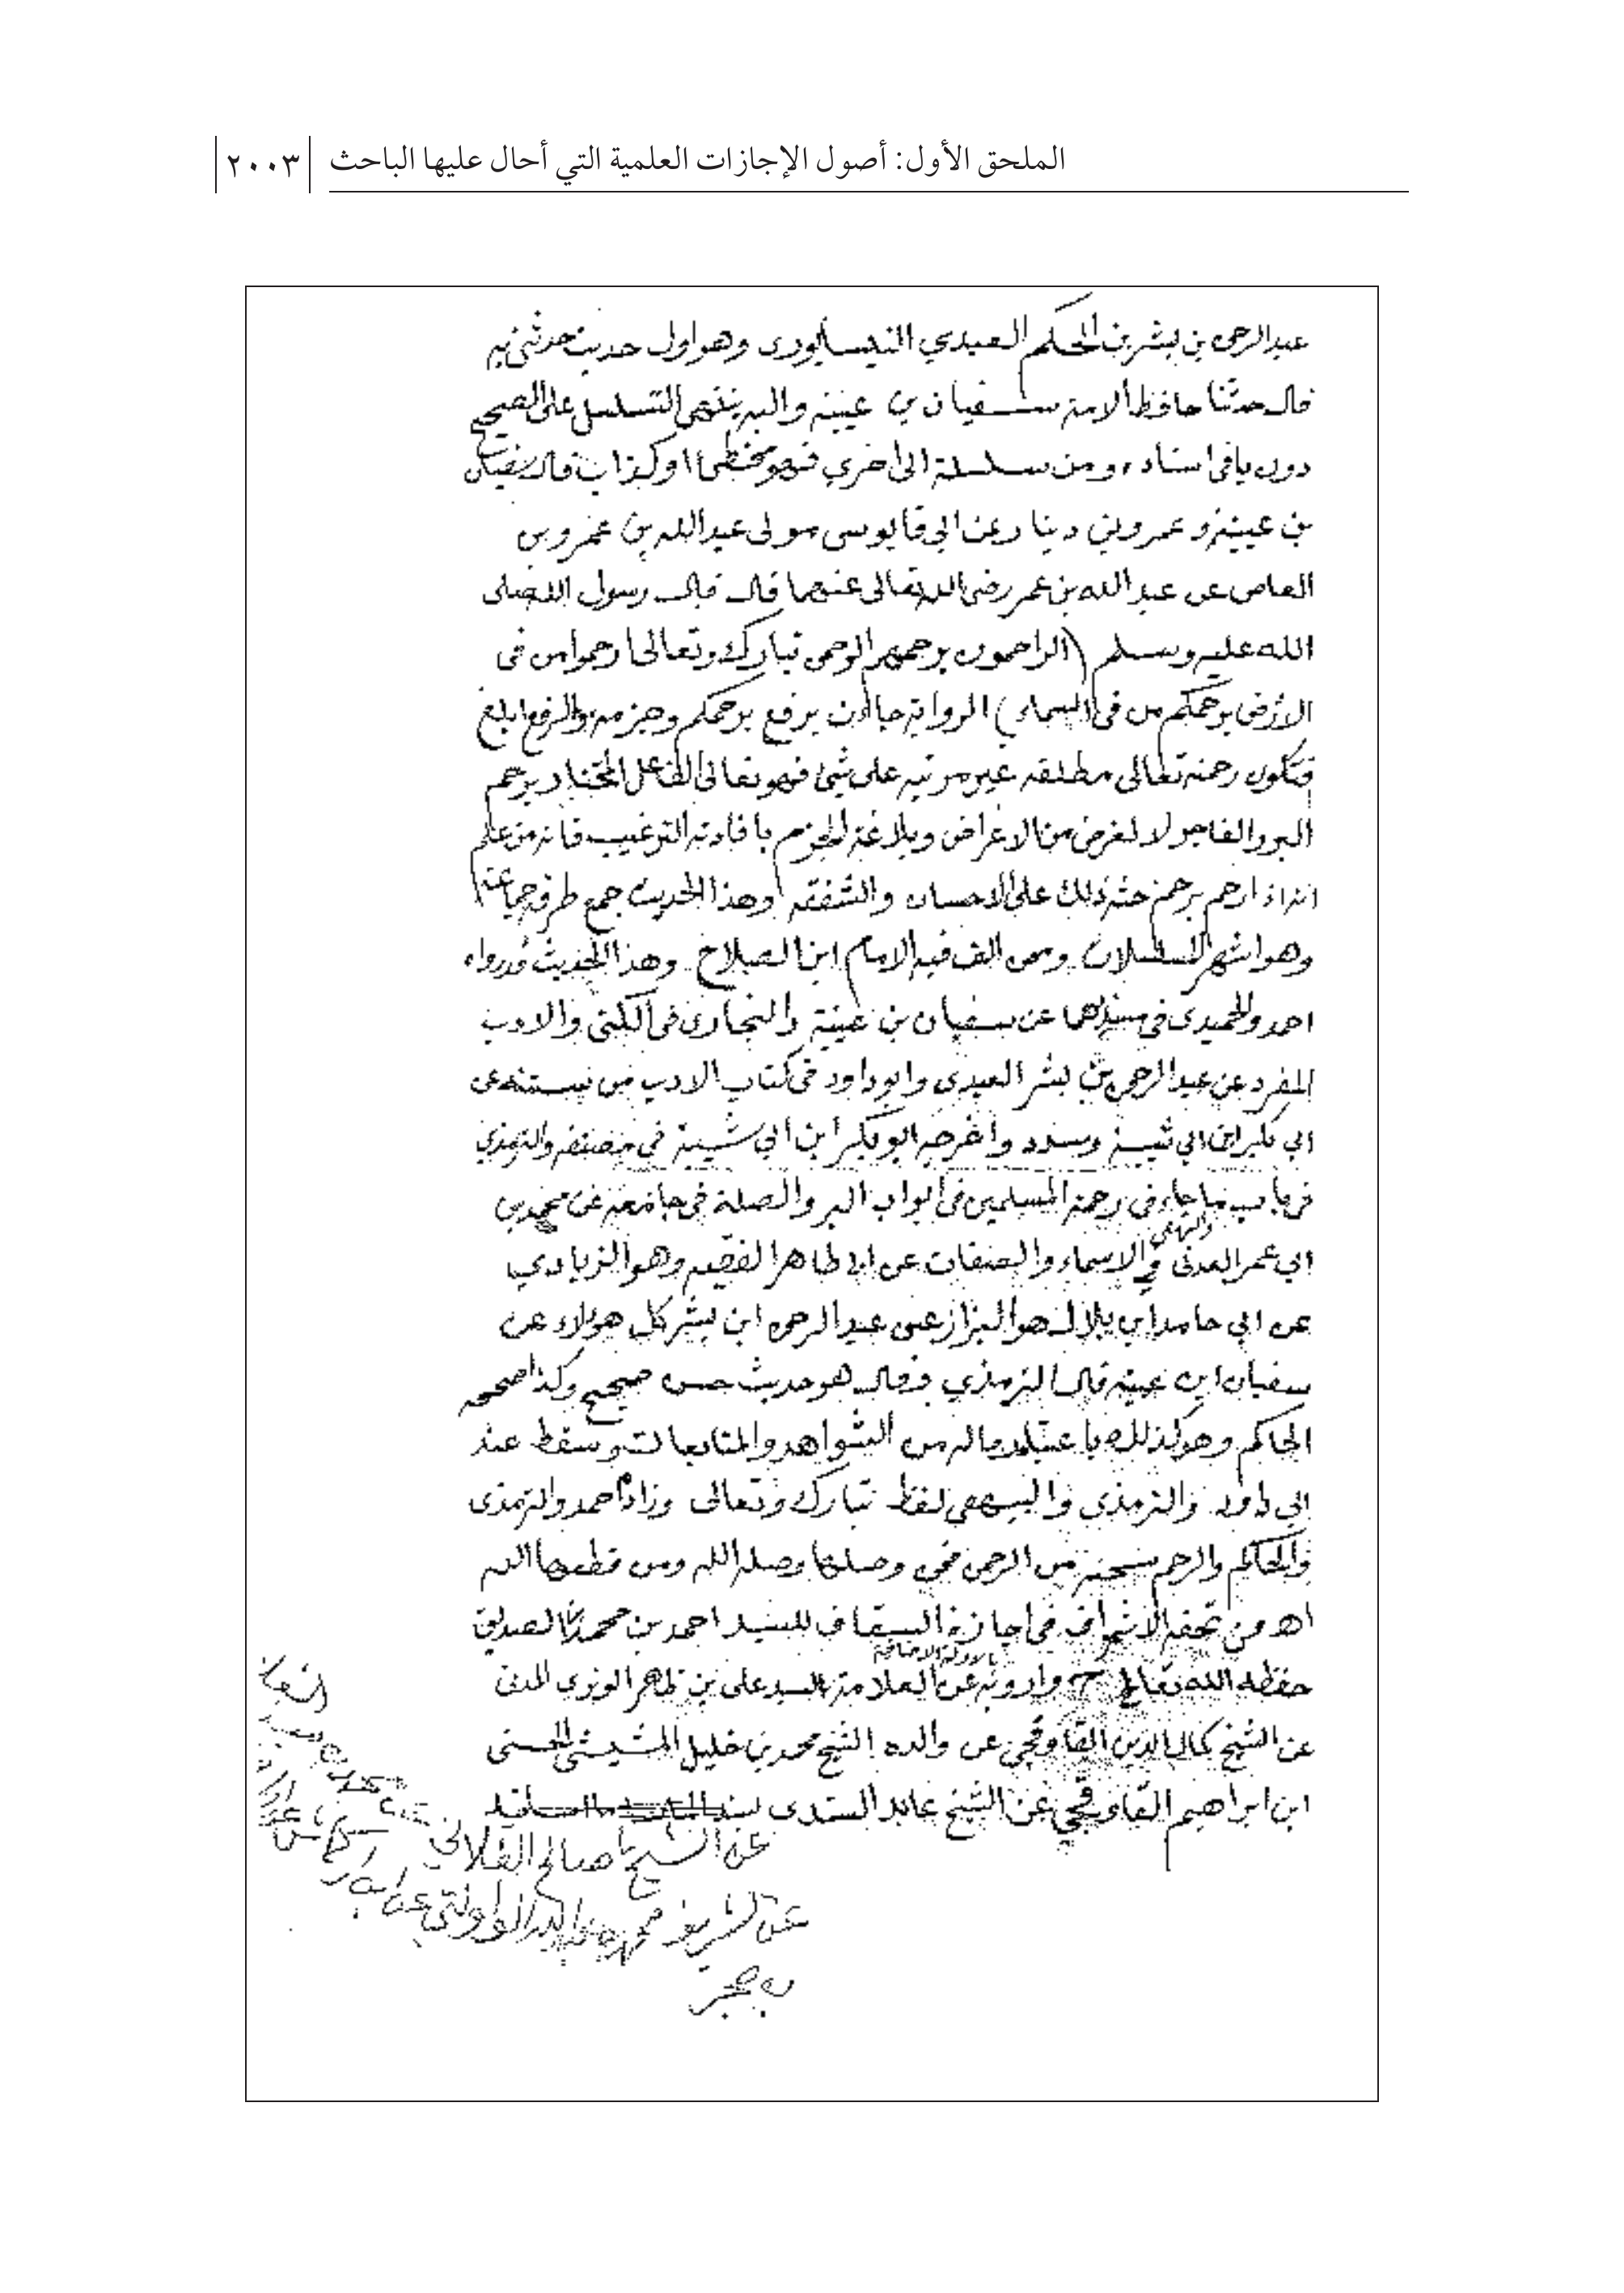 الملحق الأول: أصول الإجازات العلمية التي أحال عليها الباحث ٢٠٠٣
عبد الرحمن بن بشر بن الحكم العبدي النيسابوري وهو اول حديث حدثني به
قال حدثنا حافظ الامة سفيان بن عيينة واليه ينتهي التسلسل على الصحيح
دون باقي اسناده ومن سلسلة الى اخري فهو مخطئ او كذاب قال سفيان
بن عيينة وعمرو بن دينار عن ابي قابوس مولى عبد الله بن عمرو بن
العاص عن عبد الله بن عمر رضى الله تعالى عنهما قال قال رسول الله صلى
الله عليه وسلم (الراحمون يرحمهم الرحمن تبارك وتعالى ارحموا من في
الارض يرحمكم من في السماء) الرواية جاءت برفع يرحمكم وجزمه والرفع ابلغ
فتكون رحمته تعالى مطلقه غير مرتبه على شئ فهو تعالى الفاعل المختار يرحم
البر والفاجر لا لغرض من الاغراض وبلاغة الجزم بافادته الترغيب فانه من علم
انه اذا رحم يرحم حثه ذلك على الاحسان والشفقه وهذا الحديث جمع طرقه جماعة
وهو اشهر المسلسلات وممن الف فيه الامام ابن الصلاح وهذا الحديث قد رواه
احمد والحميدى في مسنديهما عن سفيان بن عيينة والبخارى في الكنى والادب
المفرد عن عبد الرحمن بن بشر العبدى وابو داود في كتاب الادب من سننه عن
ابي بكر ابن ابي شيبة ومسدد واخرجه ابو بكر ابن ابي شيبة في مصنفه والترمذي
في باب ما جاء في رحمة المسلمين في ابواب البر والصلة في جامعه عن محمد بن
ابي عمر العدنى والبيهقي في الاسماء والصفات عن ابي طاهر الفقيه وهو الزيادي
عن ابي حامد ابن بلال هو البزاز عن عبد الرحمن ابن بشر كل هؤلاء عن
سفيان ابن عيينة قال الترمذي وقال هو حديث حسن صحيح وكذا صححه
الحاكم وهو كذلك باعتبار ماله من الشواهد والمتابعات وسقط عند
ابي داود والترمذى والبيهقي لفظ تبارك وتعالى وزاد احمد والترمذى
والحاكم والرحم شجنة من الرحمن فمن وصلها وصله الله ومن قطعها قطعه الله
اهـ من تحفة الاشراف في اجازة السقاف للسيد احمد بن محمد الصديق
حفظه الله تعالى وارويه عن العلامة السيد علي بن ظاهر الوتري المدنى
عن الشيخ كمال الدين القاوقجي عن والده الشيخ محمد بن خليل المشيشى الحسنى
ابن ابراهيم القاوقجي عن الشيخ عابد السندى
عن الشيخ صالح الفلاني
عن الشريف محمد بن عبد الله الواولتي عن ابن اركماش عن
بن حجر